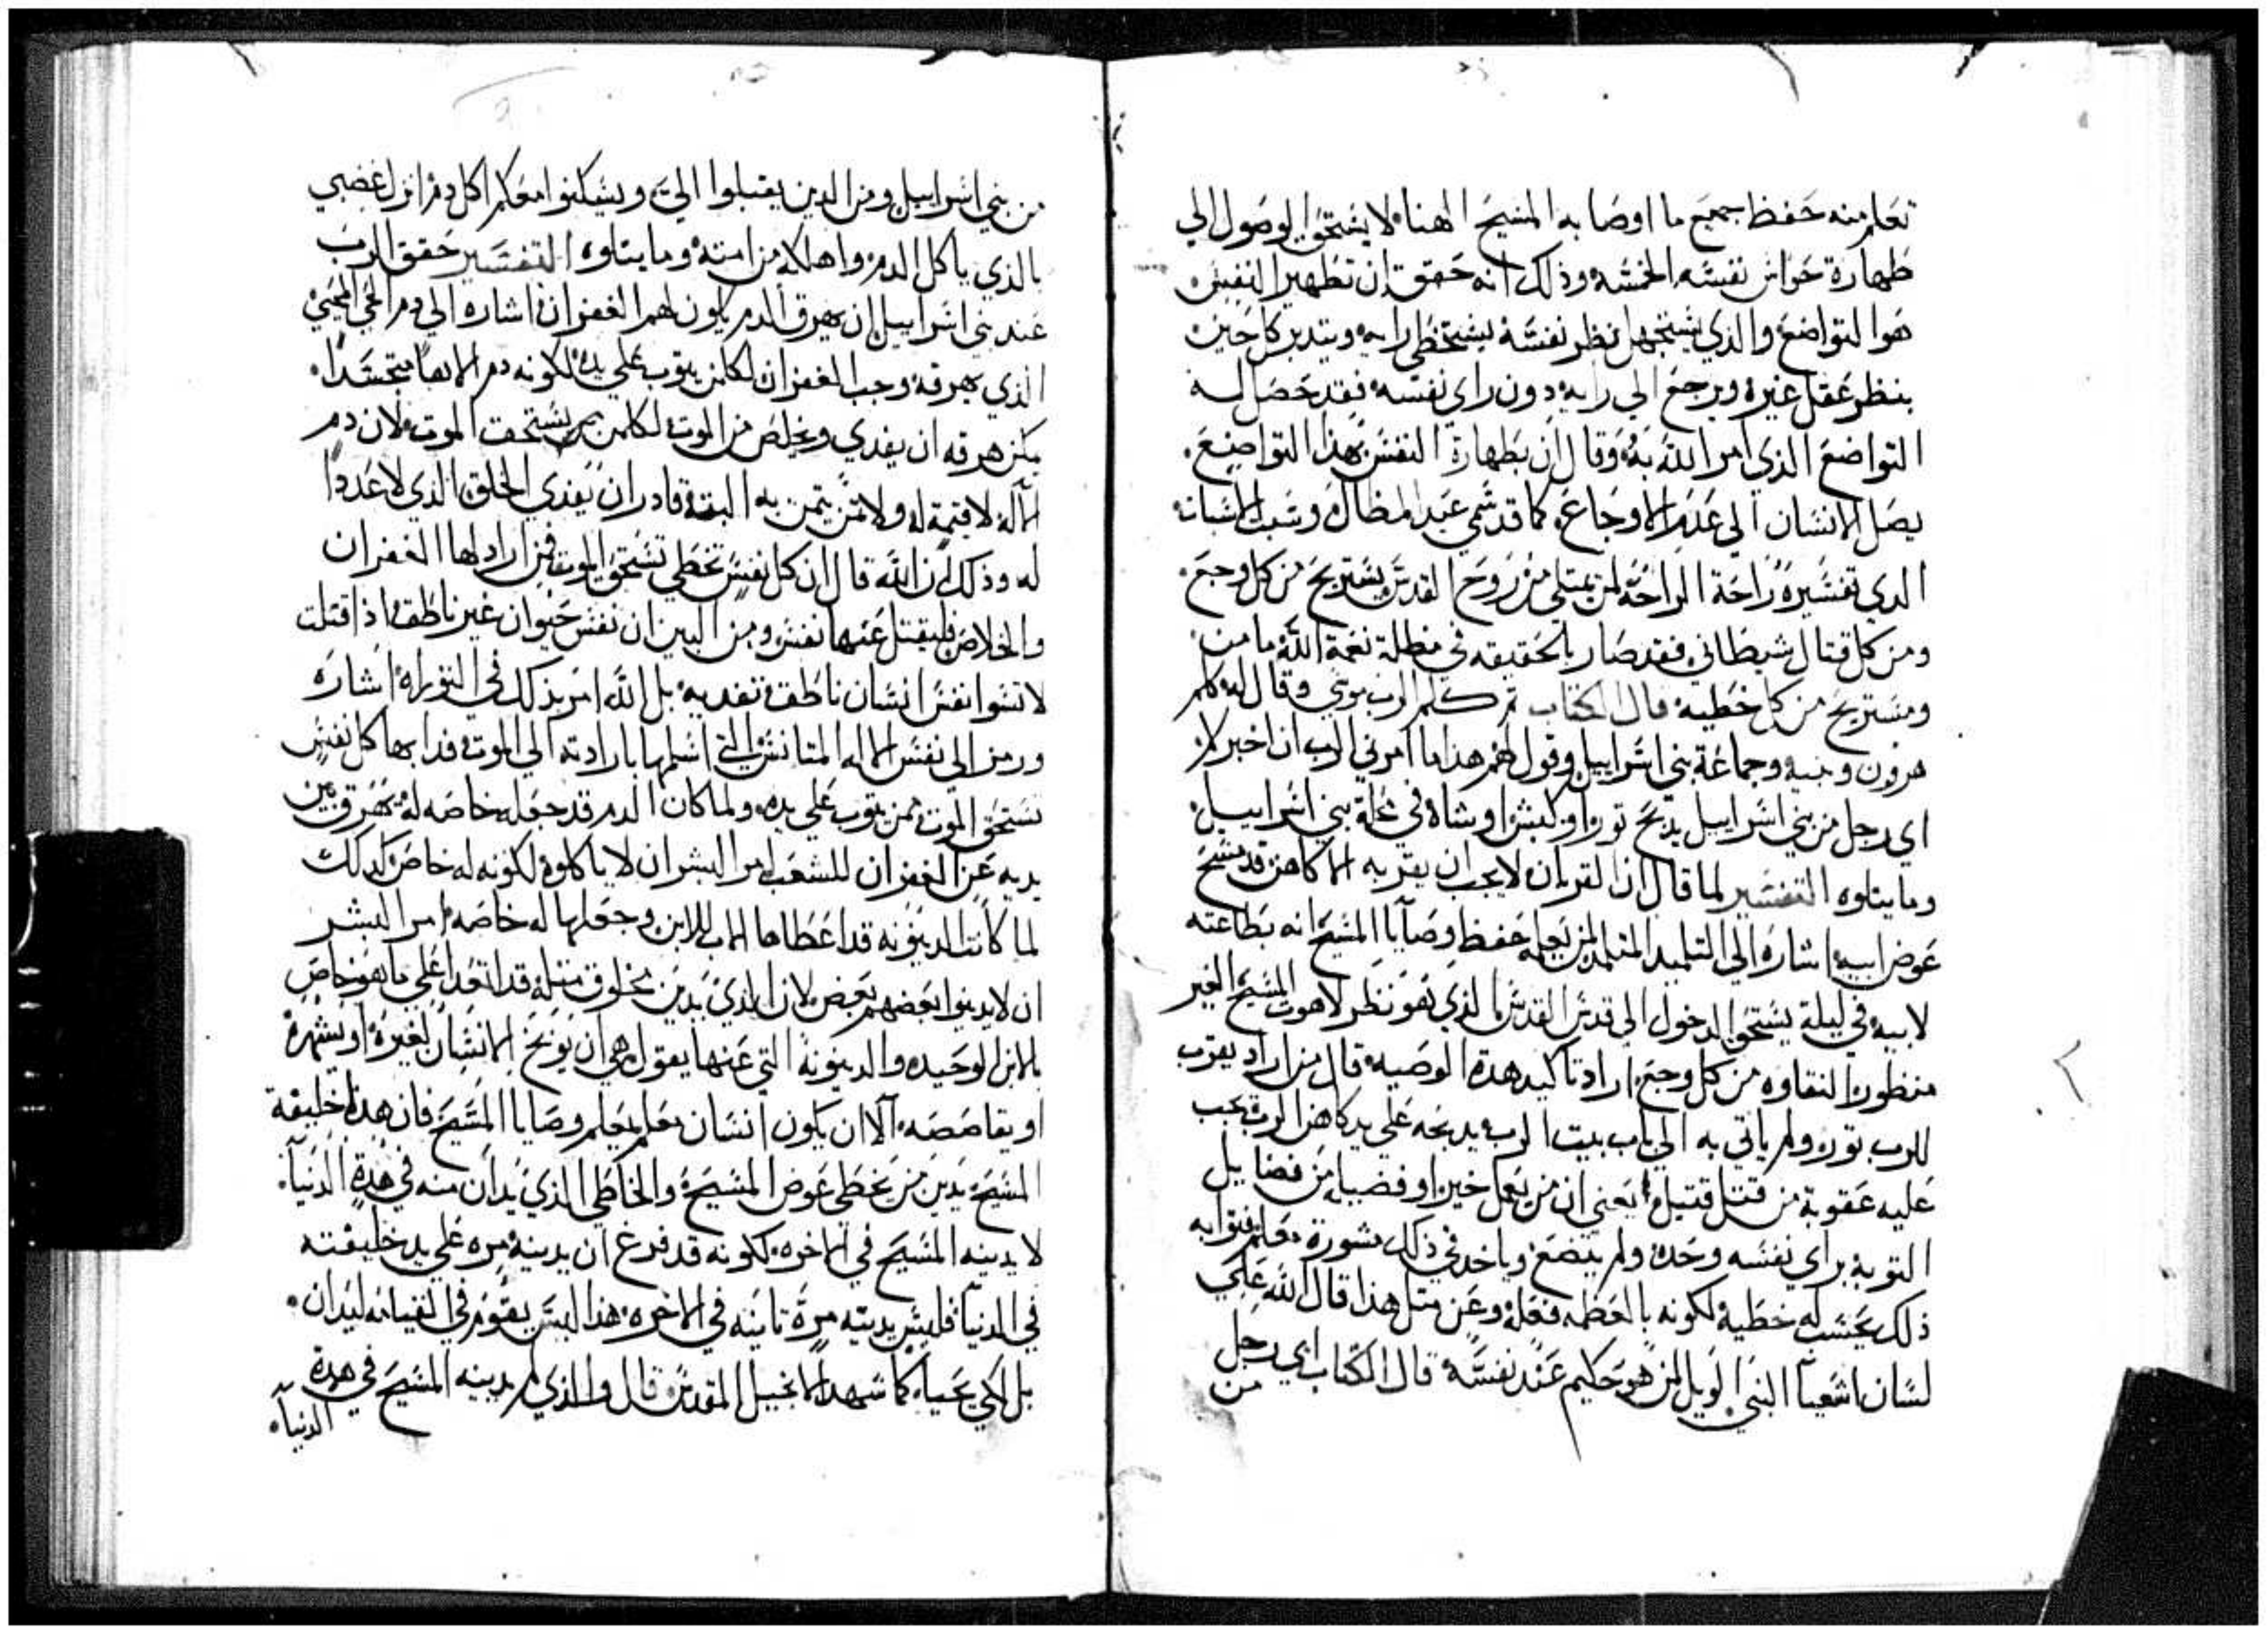 تعلم منه حفظ جميع ما اوصا به المسيح الهنا لا يستحق الوصول الي
طهارة حواس نفسه الخمسه وذلك انه حقق ان تطهير النفس
هوا التواضع والذي يستجهل نظر نفسه يستخطي رايه ويتدبر كل حين
بنظر عقل غيره ويرجع الي رايه دون راي نفسه فقد حصل له
التواضع الذي امر الله به وقال ان بطهارة النفس بهذا التواضع
يصل الانسان الي عدم الاوجاع كما قد سمي عيد المظال وسبت الاسبات
الدي تفسيره راحة الراحة لمن يمتلي من روح القدس يستريح من كل وجع
ومن كل قتال شيطاني فقد صار بالحقيقه في مظلة نعمة الله مامن
ومستريح من كل خطيه قال الكتاب تم كلم الرب موسي وقال له كلم
هرون وبنيه وجماعة بني اسراييل وقول لهم هذا ما امرني الرب ان اخبركم
اي رجل من بني اسراييل يدبح تورا او كبشا او شاه في محلة بني اسراييل
وما يتلوه التفسير لما قال ان القربان لا يجب ان يقربه الا كاهن قد مسح
عوض ابيه اشاره الي التلميد المتلمد لمن يعلمه حفظ وصايا المسيح انه بطاعته
لابيه في ليلة يستحق الدخول الي قدس القدس الذي هو نظر لاهوت المسيح الغير
منظور النقاوه من كل وجع اراد تاكيد هدة الوصيه قال من اراد يقرب
للرب توره ولم ياتي به الي باب بيت الرب يدبحه علي يد كاهن الرب يجب
عليه عقوبة من قتل قتيل يعني ان من يعمل خيرا او فضيله من فضايل
التوبة براي نفسه وحده ولم يتضع وياخد في ذلك مشورة معلم
ذلك يحسب له خطيه لكونه بالعظمه فعله وعن متل هذا قال الله علي
لسان اشعيا النبي الويل لمن هو حكيم عند نفسه قال الكتاب اي رجل
من
من بني اسراييل ومن الدين يقبلوا الي ويسكنوا معكم اكل دم انزل غضبي
بالذي ياكل الدم واهلكه من امته وما يتلوه التفسير حقق الرب
عند بني اسراييل ان بهرق الدم يكون لهم الغفران اشاره الي دم الحي المحيي
الذي بهرقه وجب الغفران لكل من يتوب علي يده لكونه دم الاها متجسدا
يمكن هرقه ان يفدي ويخلص من الموت لكلمن يستحق الموت لان دم
الاله لا قيمة له ولا تمن يتمن به البتة قادر ان يفدي الخلق الذي لا عددا
له وذلك ان الله قال ان كل نفس تخطي تستحق الموت فمن اراد لها الغفران
والخلاص فليقتل عنها نفس ومن البين ان نفس حيوان غير ناطق اذا قتلت
لا تسوا نفس انسان ناطق تفديه بل الله امر بذلك في التوراه اشاره
ورمز الي نفس الاله المتانس التي اسلمها بارادته الي الموت فدا بها كل نفس
تستحق الموت ممن يتوب علي يده ولما كان الدم قد جعله خاصه له يهرق بين
يديه عن الغفران للشعب امر البشر ان لا ياكلوه لكونه له خاص كدلك
لما كانت الدينونه قد اعطاها الاب للابن وجعلها له خاصه امر البشر
ان لا يدينوا بعضهم بعض لان الذي يدين مخلوق متله قد اتعدا علي ما هو خاص
بالابن الوحيده والدينونة التي عنها يقول هي ان يوبخ الانسان لغيره او يشهره
او يقاصصه الا ان يكون انسان معلم يعلم وصايا المسيح فان هدا خليفة
المسيح يدين من يخطي عوض المسيح والخاطي الذي يدان منه في هدة الدنيا
لا يدينه المسيح في الاخره لكونه قد فرغ ان يدينه مره علي يد خليفته
في الدنيا فليس يدينه مرة تانيه في الاخره هذا ليس يقوم في القيامه ليدان
بل لكي يحيا كما شهد الانجيل المقدس قال والذي لم يدينه المسيح في هدة
الدنيا